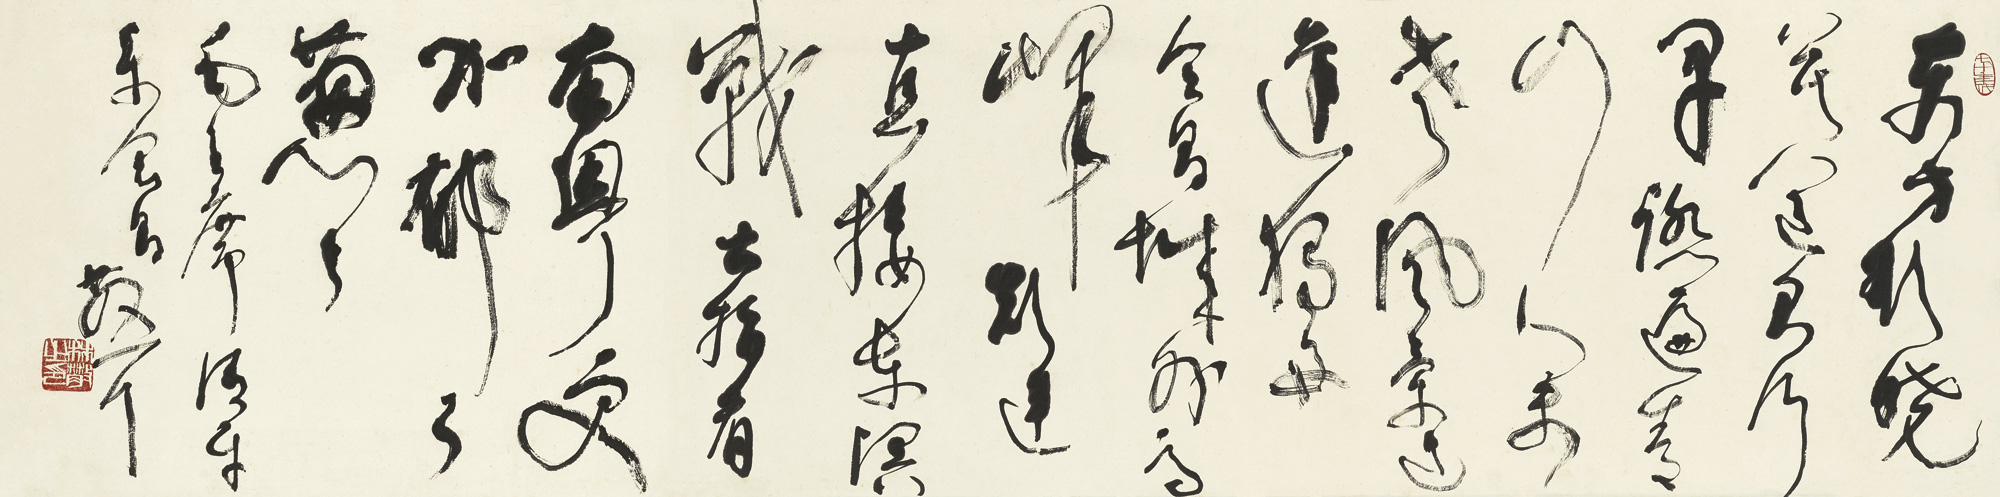 东方欲晓
莫道君行
早踏遍青
山人未
老风景这
边独好
会昌城外高
峰颠连
直接东溟
戰士指看
南粤更
加郁々
葱々
毛主席清平
乐会昌 散耳
林散之印